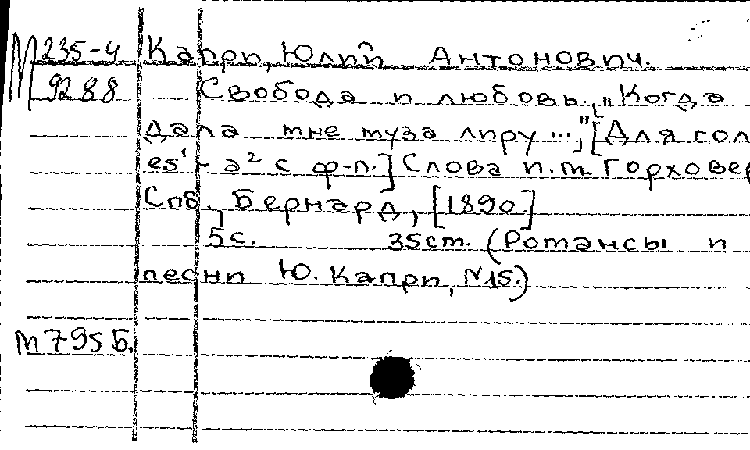 М 235-4 Капри, Юлий Антонович.
9288 Свобода и любовь. „Когда
дала мне муза лиру...," [Для гол
es¹ - a² с ф-п.] Слова П.М Горхове
Спб, Бернард, [1890]
5с. 35ст. (Романсы и
песни Ю. Капри, №15.)
М 795Б.